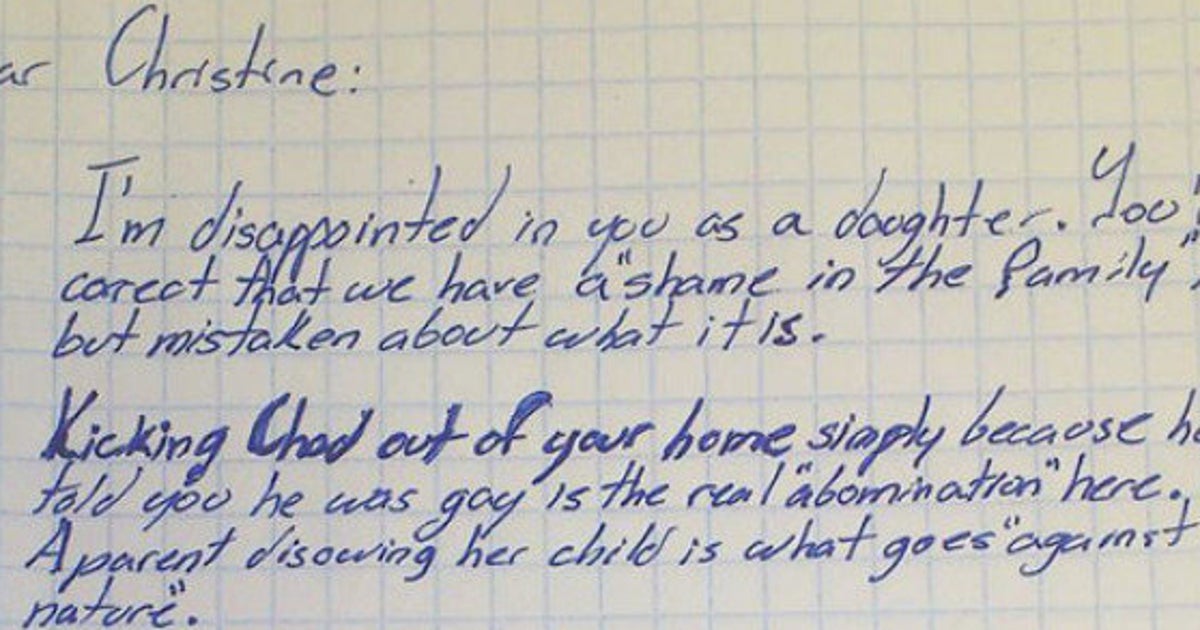 ar Christine:
I'm disappointed in you as a daughter. You'
corect that we have a "shame in the family",
but mistaken about what it is.
Kicking Chad out of your home simply because he
told you he was gay is the real "abomination" here.
A parent disowing her child is what goes "against
nature".